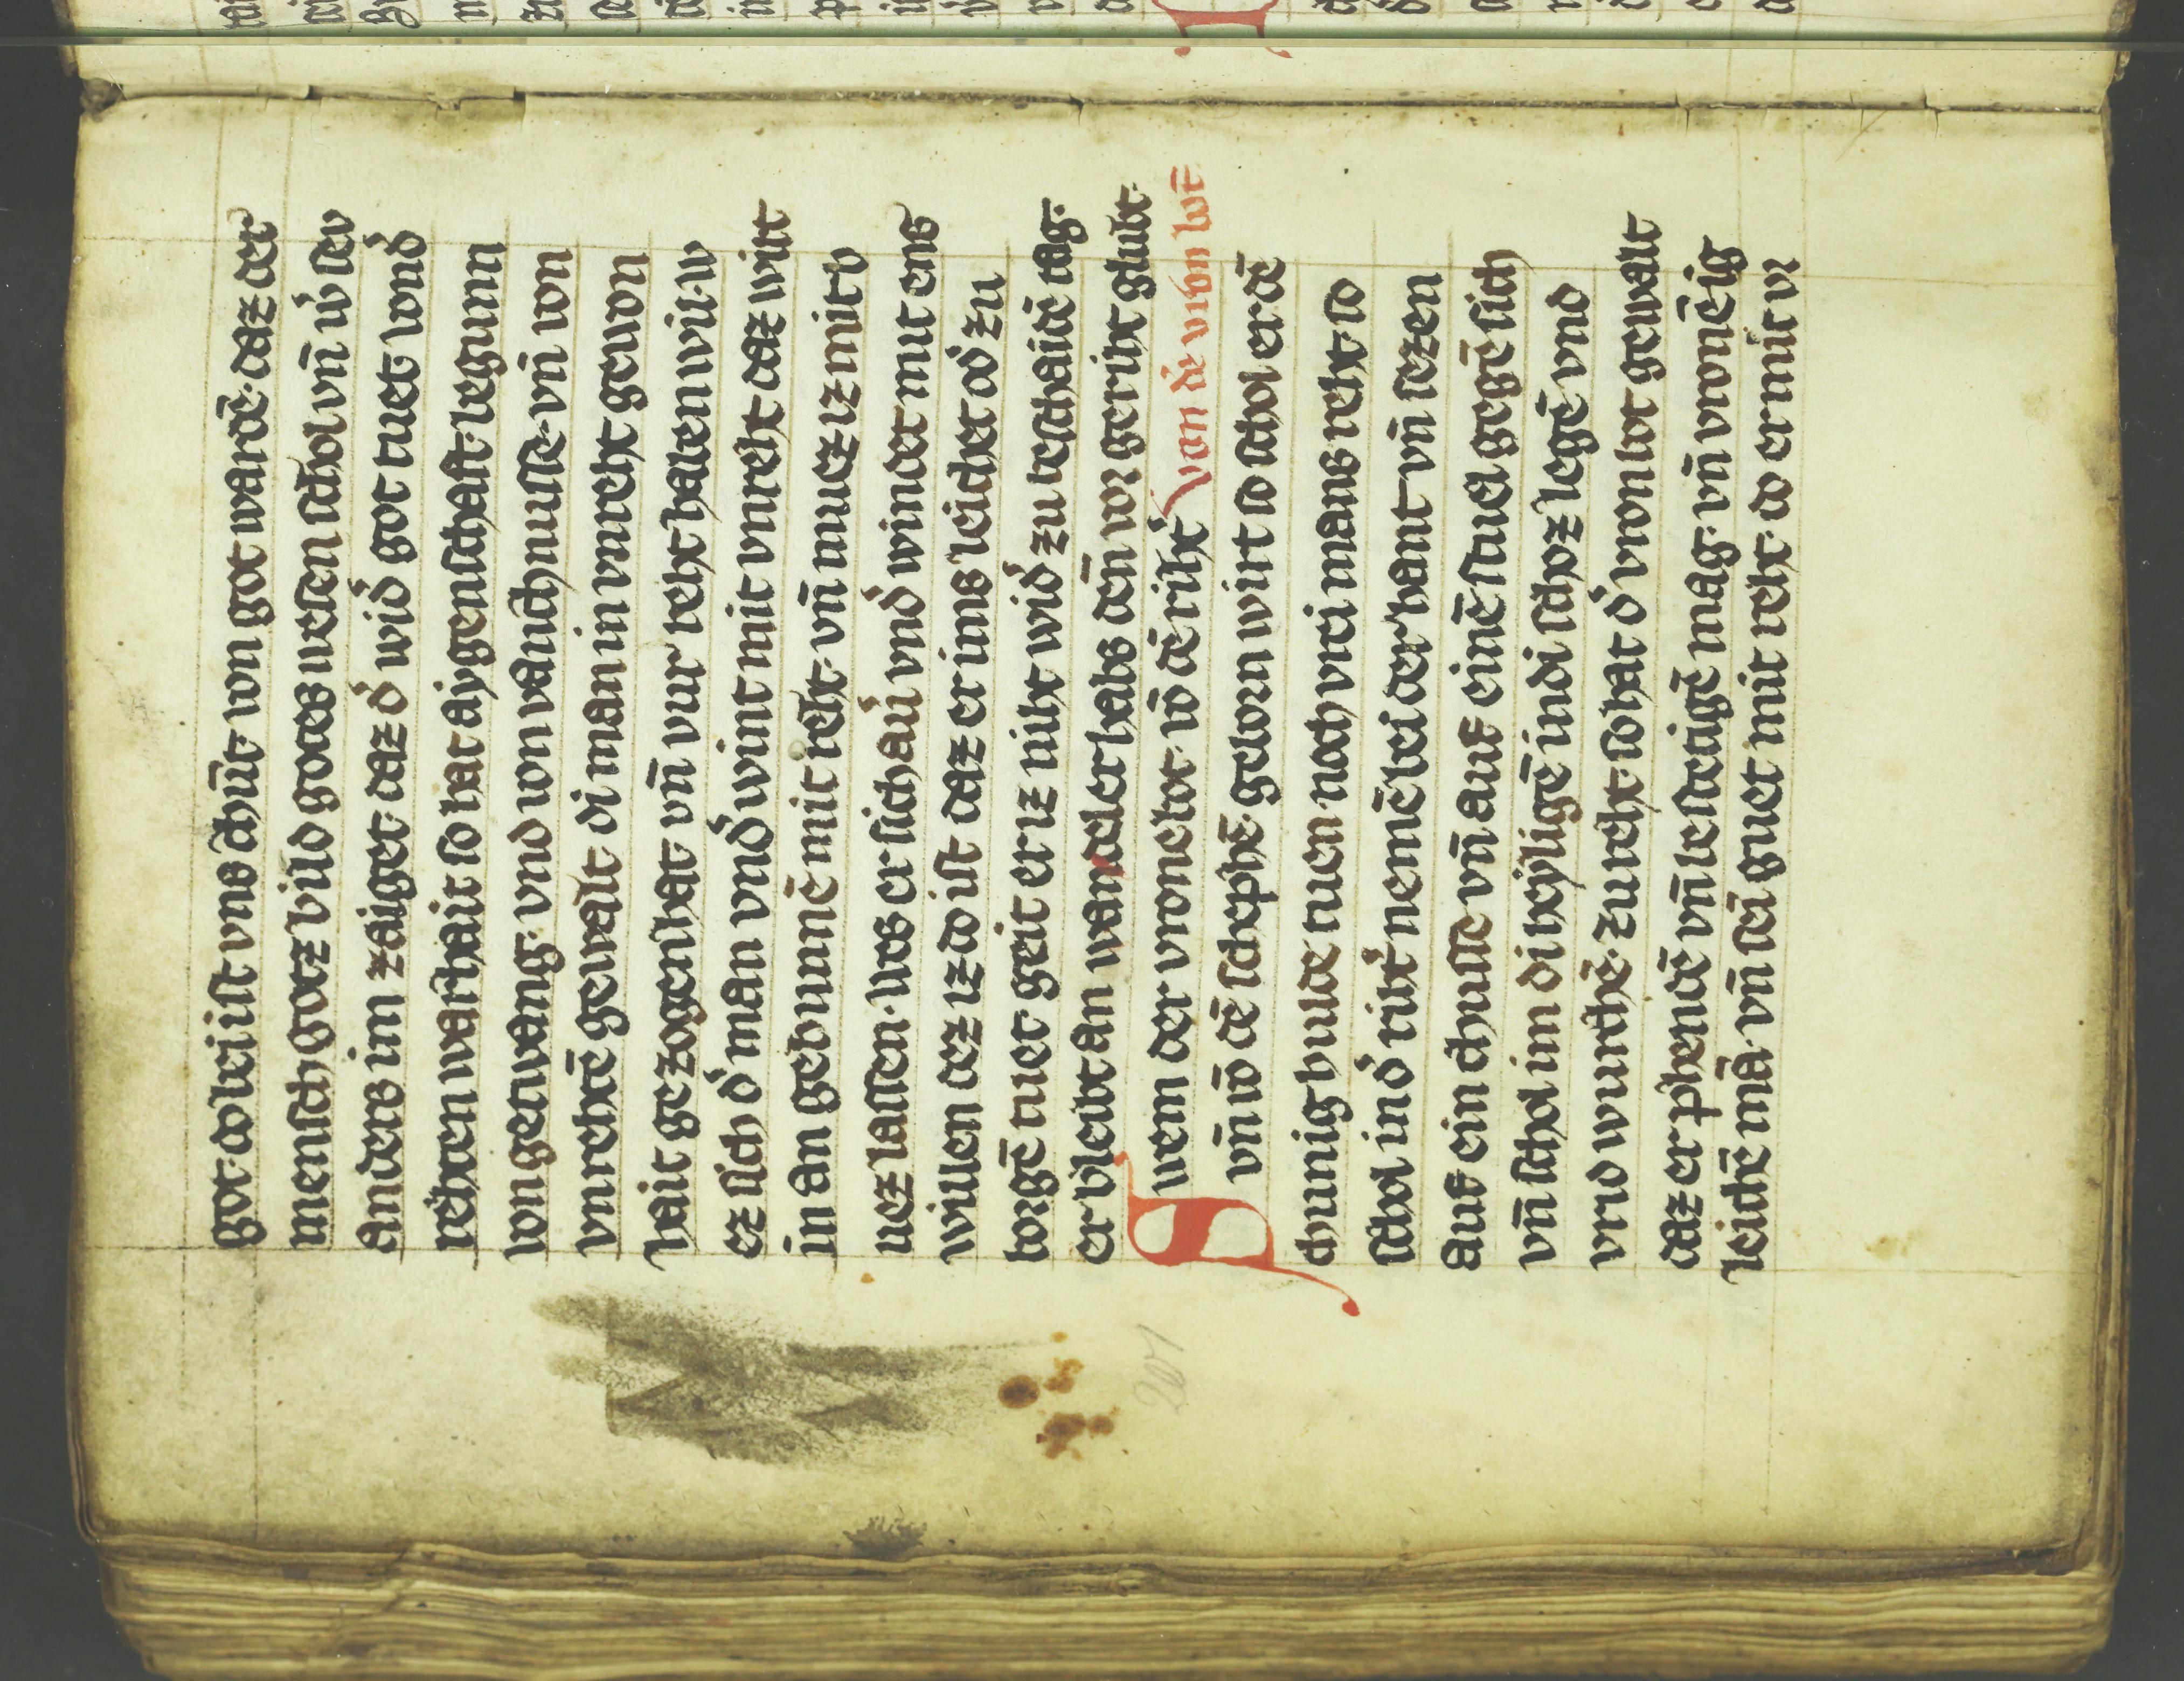 got·do bei ist vns chu̅t· von got warde̅· daz der
mensch gotz bild gotes wesen schol vn̅ w̾ sev
anders im zaiget· daz d̾ wid̾ got tuet vond̾
rehten warhait so hat aygenschaft· legunn
von getwang· vnd von vanchnusse· vn̅ von
vnrehte̅ gewalt· di man in vnreht gewon
hait gezogen hat· vn̅ vur reht haben wil· w
ez sich d̾ man vnd̾ wint mit vnreht daz wirt
in an gebunne̅ mit reht· vn̅ muez iz mit v
uez lassen· wes er sich auͥ vnd̾ windet mut ens
willen dez iz do ist· daz er ims leichet od̾ zu
borge̅ tuet· geit er iz niht wid̾ zu beschaide̅ tag·
er bleibt an wandel er habs den̅ vor geriht glubt·
Swem der vronebot· vo̅ de̅ riht̾ von de̅ vron bot̅
vn̅ vo̅ de̅ schephe̅· geborn wirt so schol er de̅
chunig hulde tuen· noch vrei mans reht· so
schol in d̾ riht̾ neme̅ bei der hant vn̅ sezen
auf ein chusse vn̅ auf eine̅ stuel gege̅ sich
vn̅ schol im di heylige̅ in di schoz lege̅ vnd
vnd wurche̅· zu reht· so hat d̾ vron bot gewalt
daz er phende̅ vn̅ bestetige̅ mag· vn̅ vrone̅ ig
leiche̅ ma̅· vn̅ sei guet mit reht· do er mit vr